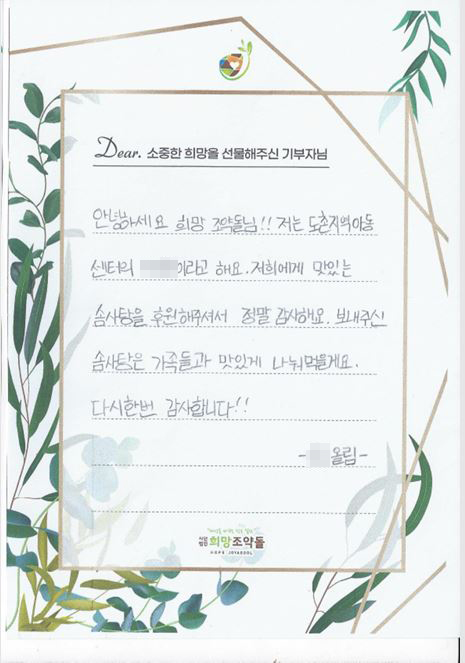 Dear. 소중한 희망을 선물해주신 기부자님
안녕하세요 희망 조약돌님!! 저는 도촌지역아동
센터의 이라고 해요. 저희에게 맛있는
솜사탕을 후원해주셔서 정말 감사해요. 보내주신
솜사탕은 가족들과 맛있게 나눠먹을게요.
다시한번 감사합니다!!
- 올림-
사단법인 희망조약돌
HOPE JOYAGDOL